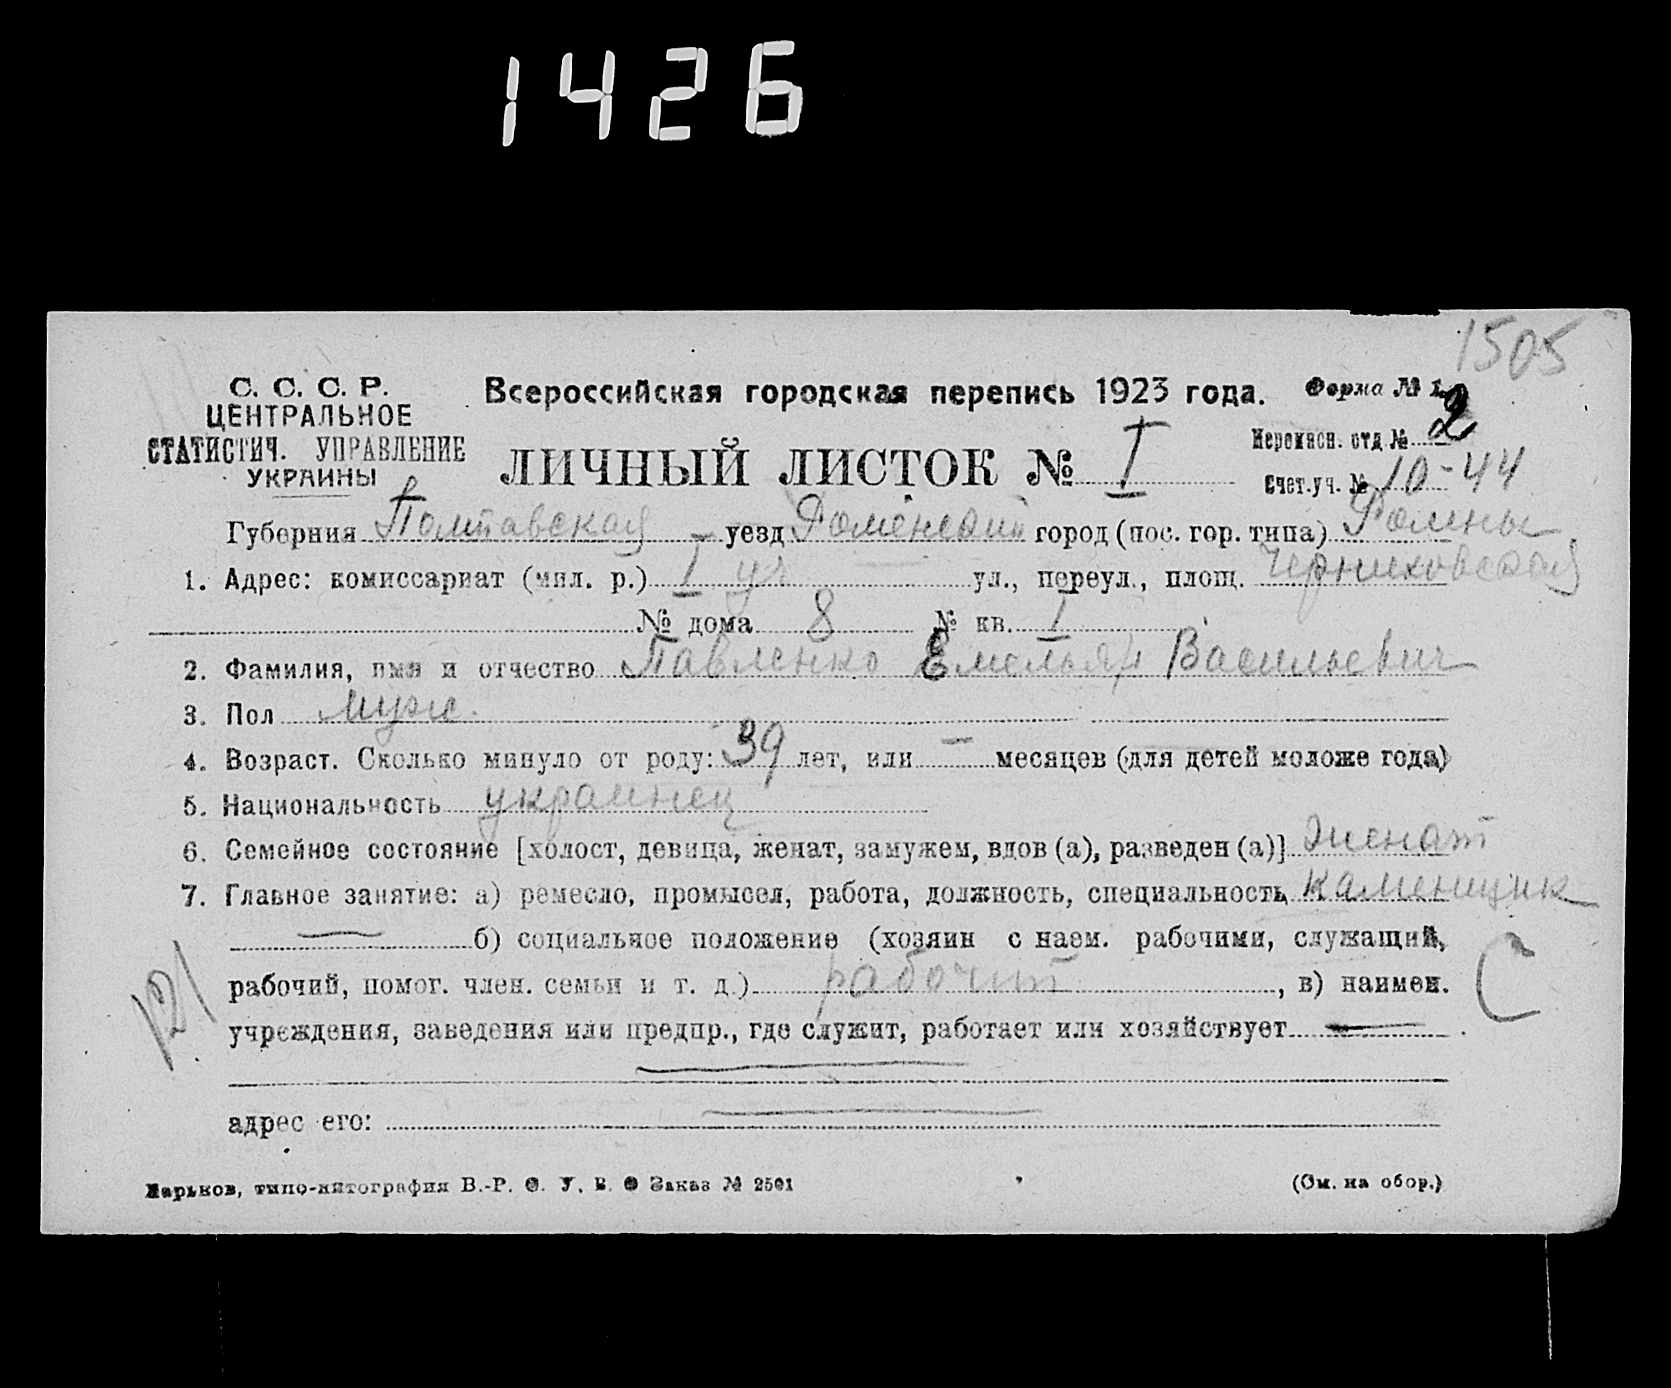 1426
1505
С. С. С. Р.
ЦЕНТРАЛЬНОЕ
СТАТИСТИЧ. УПРАВЛЕНИЕ
УКРАИНЫ
Всероссийская городская перепись 1923 года.
Форма № 1
ЛИЧНЫЙ ЛИСТОК № I
Переписн. отд № 2
Счет.уч. № 10-44
Губерния Полтавская уезд Роменский город (пос. гор. типа) Ромны
1. Адрес: комиссариат (мил. р.) I уч ул., переул., площ. Черниховская
№ дома 8 № кв. I
2. Фамилия, имя и отчество Павленко Емельян Васильевич
3. Пол муж.
4. Возраст. Сколько минуло от роду: 39 лет, или — месяцев (для детей моложе года)
5. Национальность украинец
6. Семейное состояние [холост, девица, женат, замужем, вдов (а), разведен (а)] женат
7. Главное занятие: а) ремесло, промысел, работа, должность, специальность, каменщик
— б) социальное положение (хозяин с наем. рабочими, служащий,
рабочий, помог. член. семьи и т. д.) рабочий, в) наимен.
С
121
учреждения, заведения или предпр., где служит, работает или хозяйствует —
адрес его:
Харьков, типо-литография В.-Р. Ф. У. В. О Заказ № 2501
(См. на обор.)